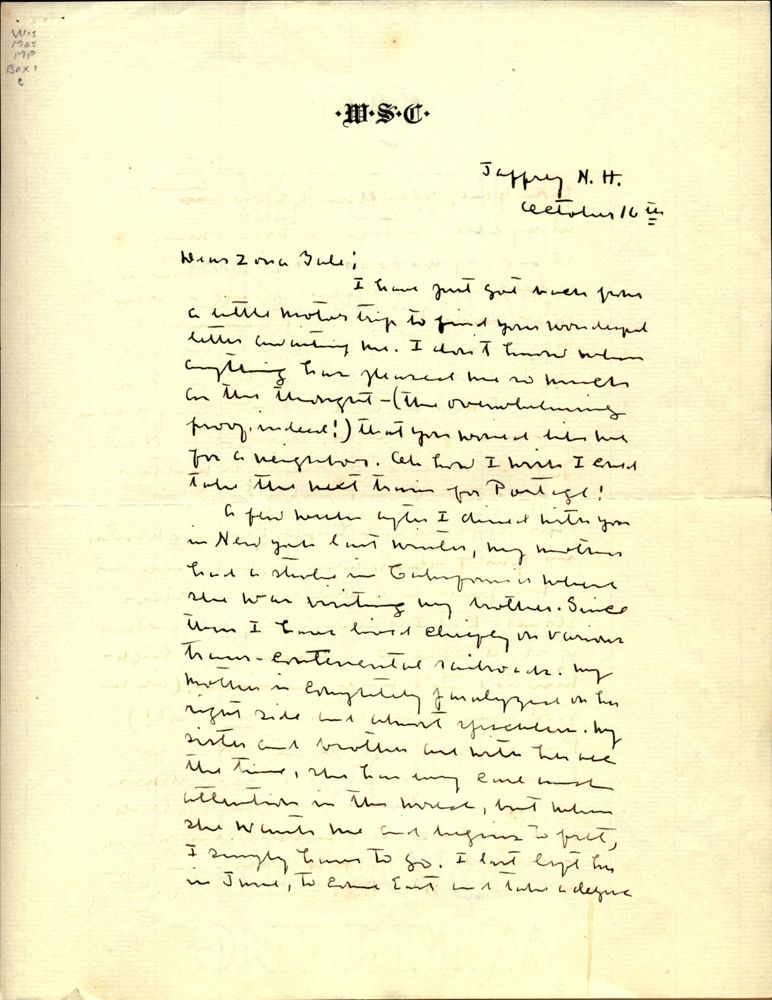 Wis
Mss
MP
Box 1
C
·W·S·C·
Jaffrey N. H.
October 16th
Dear Zona Gale;
I have just got back from
a little motor trip to find your wonderful
letter awaiting me. I don't know when
anything has pleased me so much
as the thought - (the overwhelming
proof, indeed!) that you would like me
for a neighbor. Oh how I wish I could
take the next train for Portage!
A few weeks after I dined with you
in New York last winter, my mother
had a stroke in California where
she was visiting my brother. Since
then I have lived chiefly on various
trans-continental railroads. My
mother is completely paralyzed on her
right side and almost speechless. My
sister and brother are with her all
the time, she has every care and
attention in the world, but when
she wants me and begins to fret,
I simply have to go. I last left her
in June, to come East and take a degree